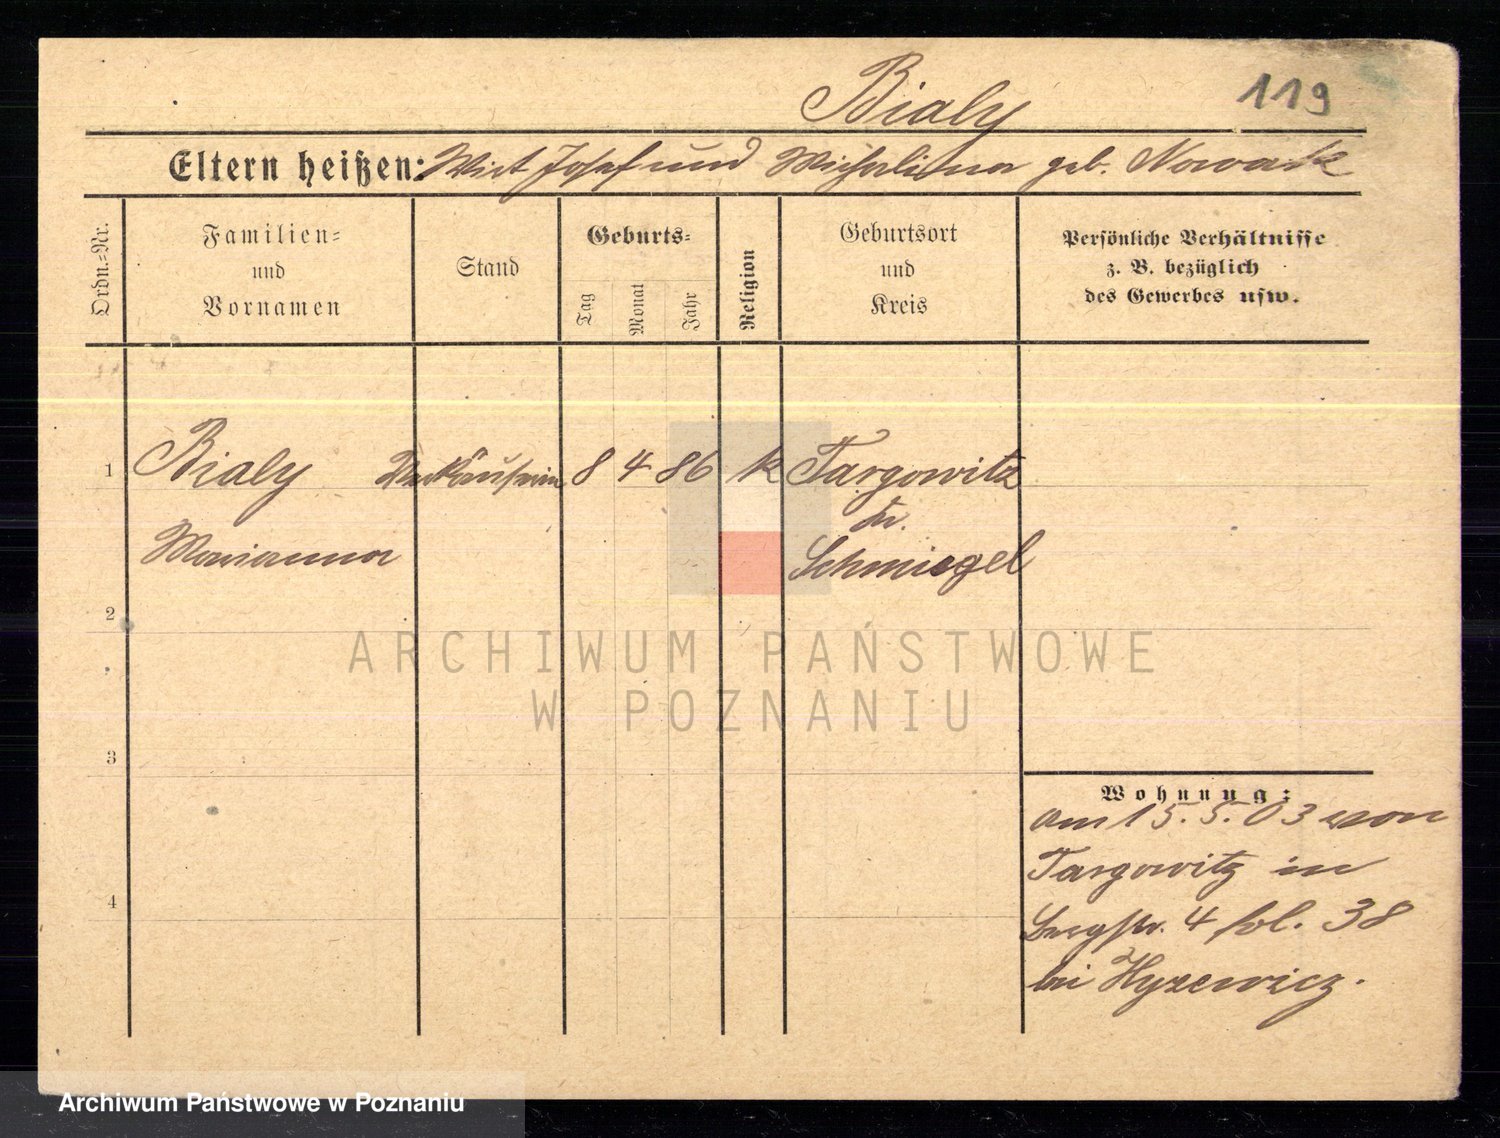 Bialy
119
Eltern heißen: Wirt Josef und Michalina geb. Nowak
Ordn.=Nr.
Familien=
und
Vornamen
Stand
Geburts=
Tag
Monat
Jahr
Religion
Geburtsort
und
Kreis
Persönliche Verhältnisse
z. B. bezüglich
des Gewerbes usw.
1 Bialy Verkäuferin 8 4 86 k Targowitz
Kr.
Marianna Schmiegel
2
3
4
Wohnung:
am 15.5.03 von
Targowitz in
4 fol. 38
bei Hyzewicz.
ARCHIWUM PAŃSTWOWE
W POZNANIU
Archiwum Państwowe w Poznaniu